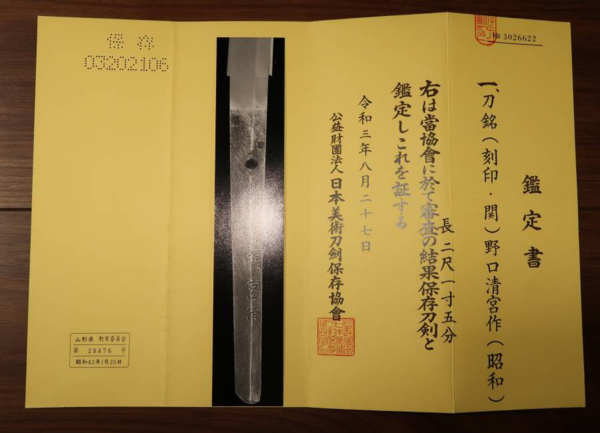 № 3026622
鑑定書
一、刀 銘(刻印・関)野口清宮作(昭和)
長 二尺一寸五分
右は當協會に於て審査の結果保存刀剣と
鑑定しこれを証する
令和三年八月二十七日
公益財團法人 日本美術刀劍保存協會
保存
03202106
教育委員会
第 28476 号
昭和42年1月20日